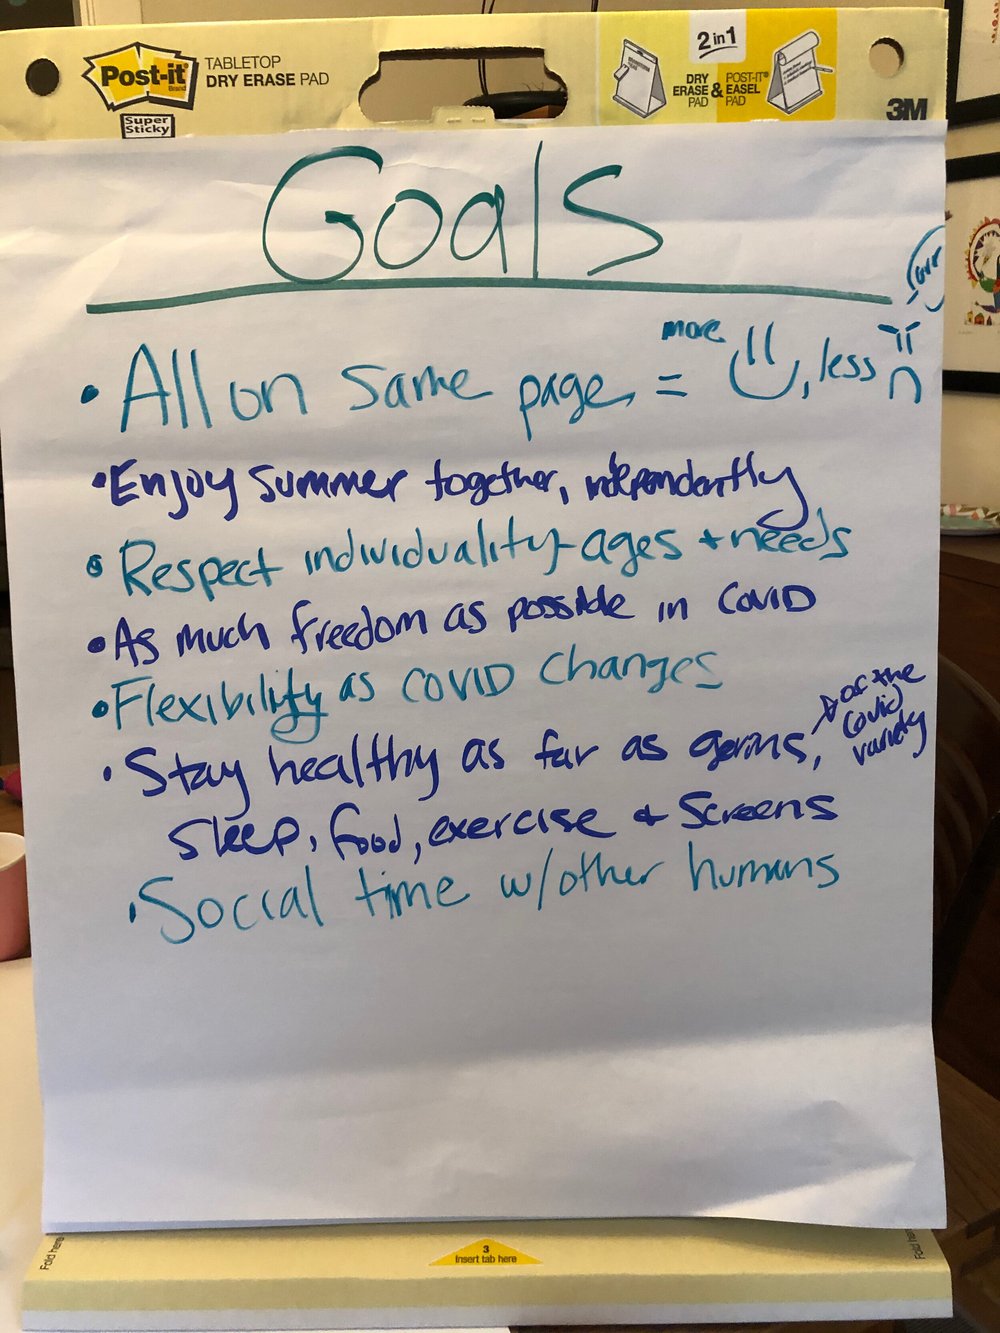 Post-it
Brand
Super
Sticky
TABLETOP
DRY ERASE PAD
2 in 1
DRY
ERASE
PAD
&
POST-IT®
EASEL
PAD
3M
Goals
• All on same page = more , less
• Enjoy summer together, independently
• Respect individuality - ages + needs
• As much freedom as possible in COVID
• Flexibility as COVID changes
• Stay healthy as far as germs,
of the
Covid
variety
sleep, food, exercise + screens
• Social time w/other humans
Fold here
3
Insert tab here
Fold here